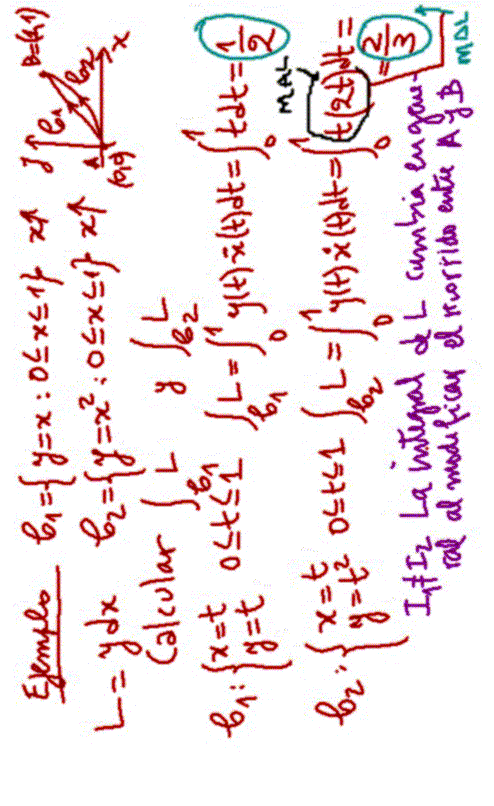 Ejemplo
𝒞₁ = { y = x : 0 ≤ x ≤ 1 } x↑
𝒞₂ = { y = x² : 0 ≤ x ≤ 1 } x↑
y
B=(1,1)
𝒞₁
𝒞₂
A
(0,0)
x
L = y dx
Calcular ∫_𝒞₁ L y ∫_𝒞₂ L
𝒞₁ : { x = t y = t 0 ≤ t ≤ 1 ∫_𝒞₁ L = ∫₀¹ y(t) ẋ(t) dt = ∫₀¹ t dt = 1/2
𝒞₂ : { x = t y = t² 0 ≤ t ≤ 1 ∫_𝒞₂ L = ∫₀¹ y(t) ẋ(t) dt = ∫₀¹ t(2t) dt = = 2/3
MAL
MAL
I₁ ≠ I₂ La integral de L cambia en gene-
ral al modificar el recorrido entre A y B